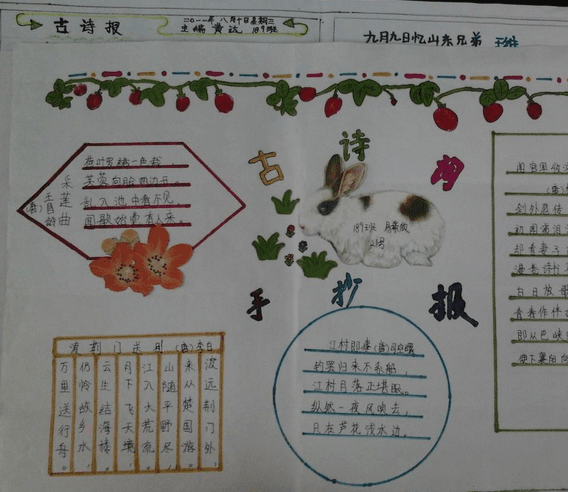 古诗报
二〇一一年八月十日星期三
主编
九月九日忆山东兄弟 王维
古诗
手抄报
采莲曲
(唐)王昌龄
荷叶罗裙一色裁，
芙蓉向脸两边开。
乱入池中看不见，
闻歌始觉有人来。
189班
21号
渡荆门送别 (唐)李白
渡远荆门外，
来从楚国游。
山随平野尽，
江入大荒流。
月下飞天镜，
云生结海楼。
仍怜故乡水，
万里送行舟。
江村即事(唐)司空曙
钓罢归来不系船，
江村月落正堪眠。
纵然一夜风吹去，
只在芦花浅水边。
闻官军收
剑外忽传
初闻涕泪
却看妻子
漫卷诗书
白日放歌
青春作伴
即从巴峡
便下襄阳向